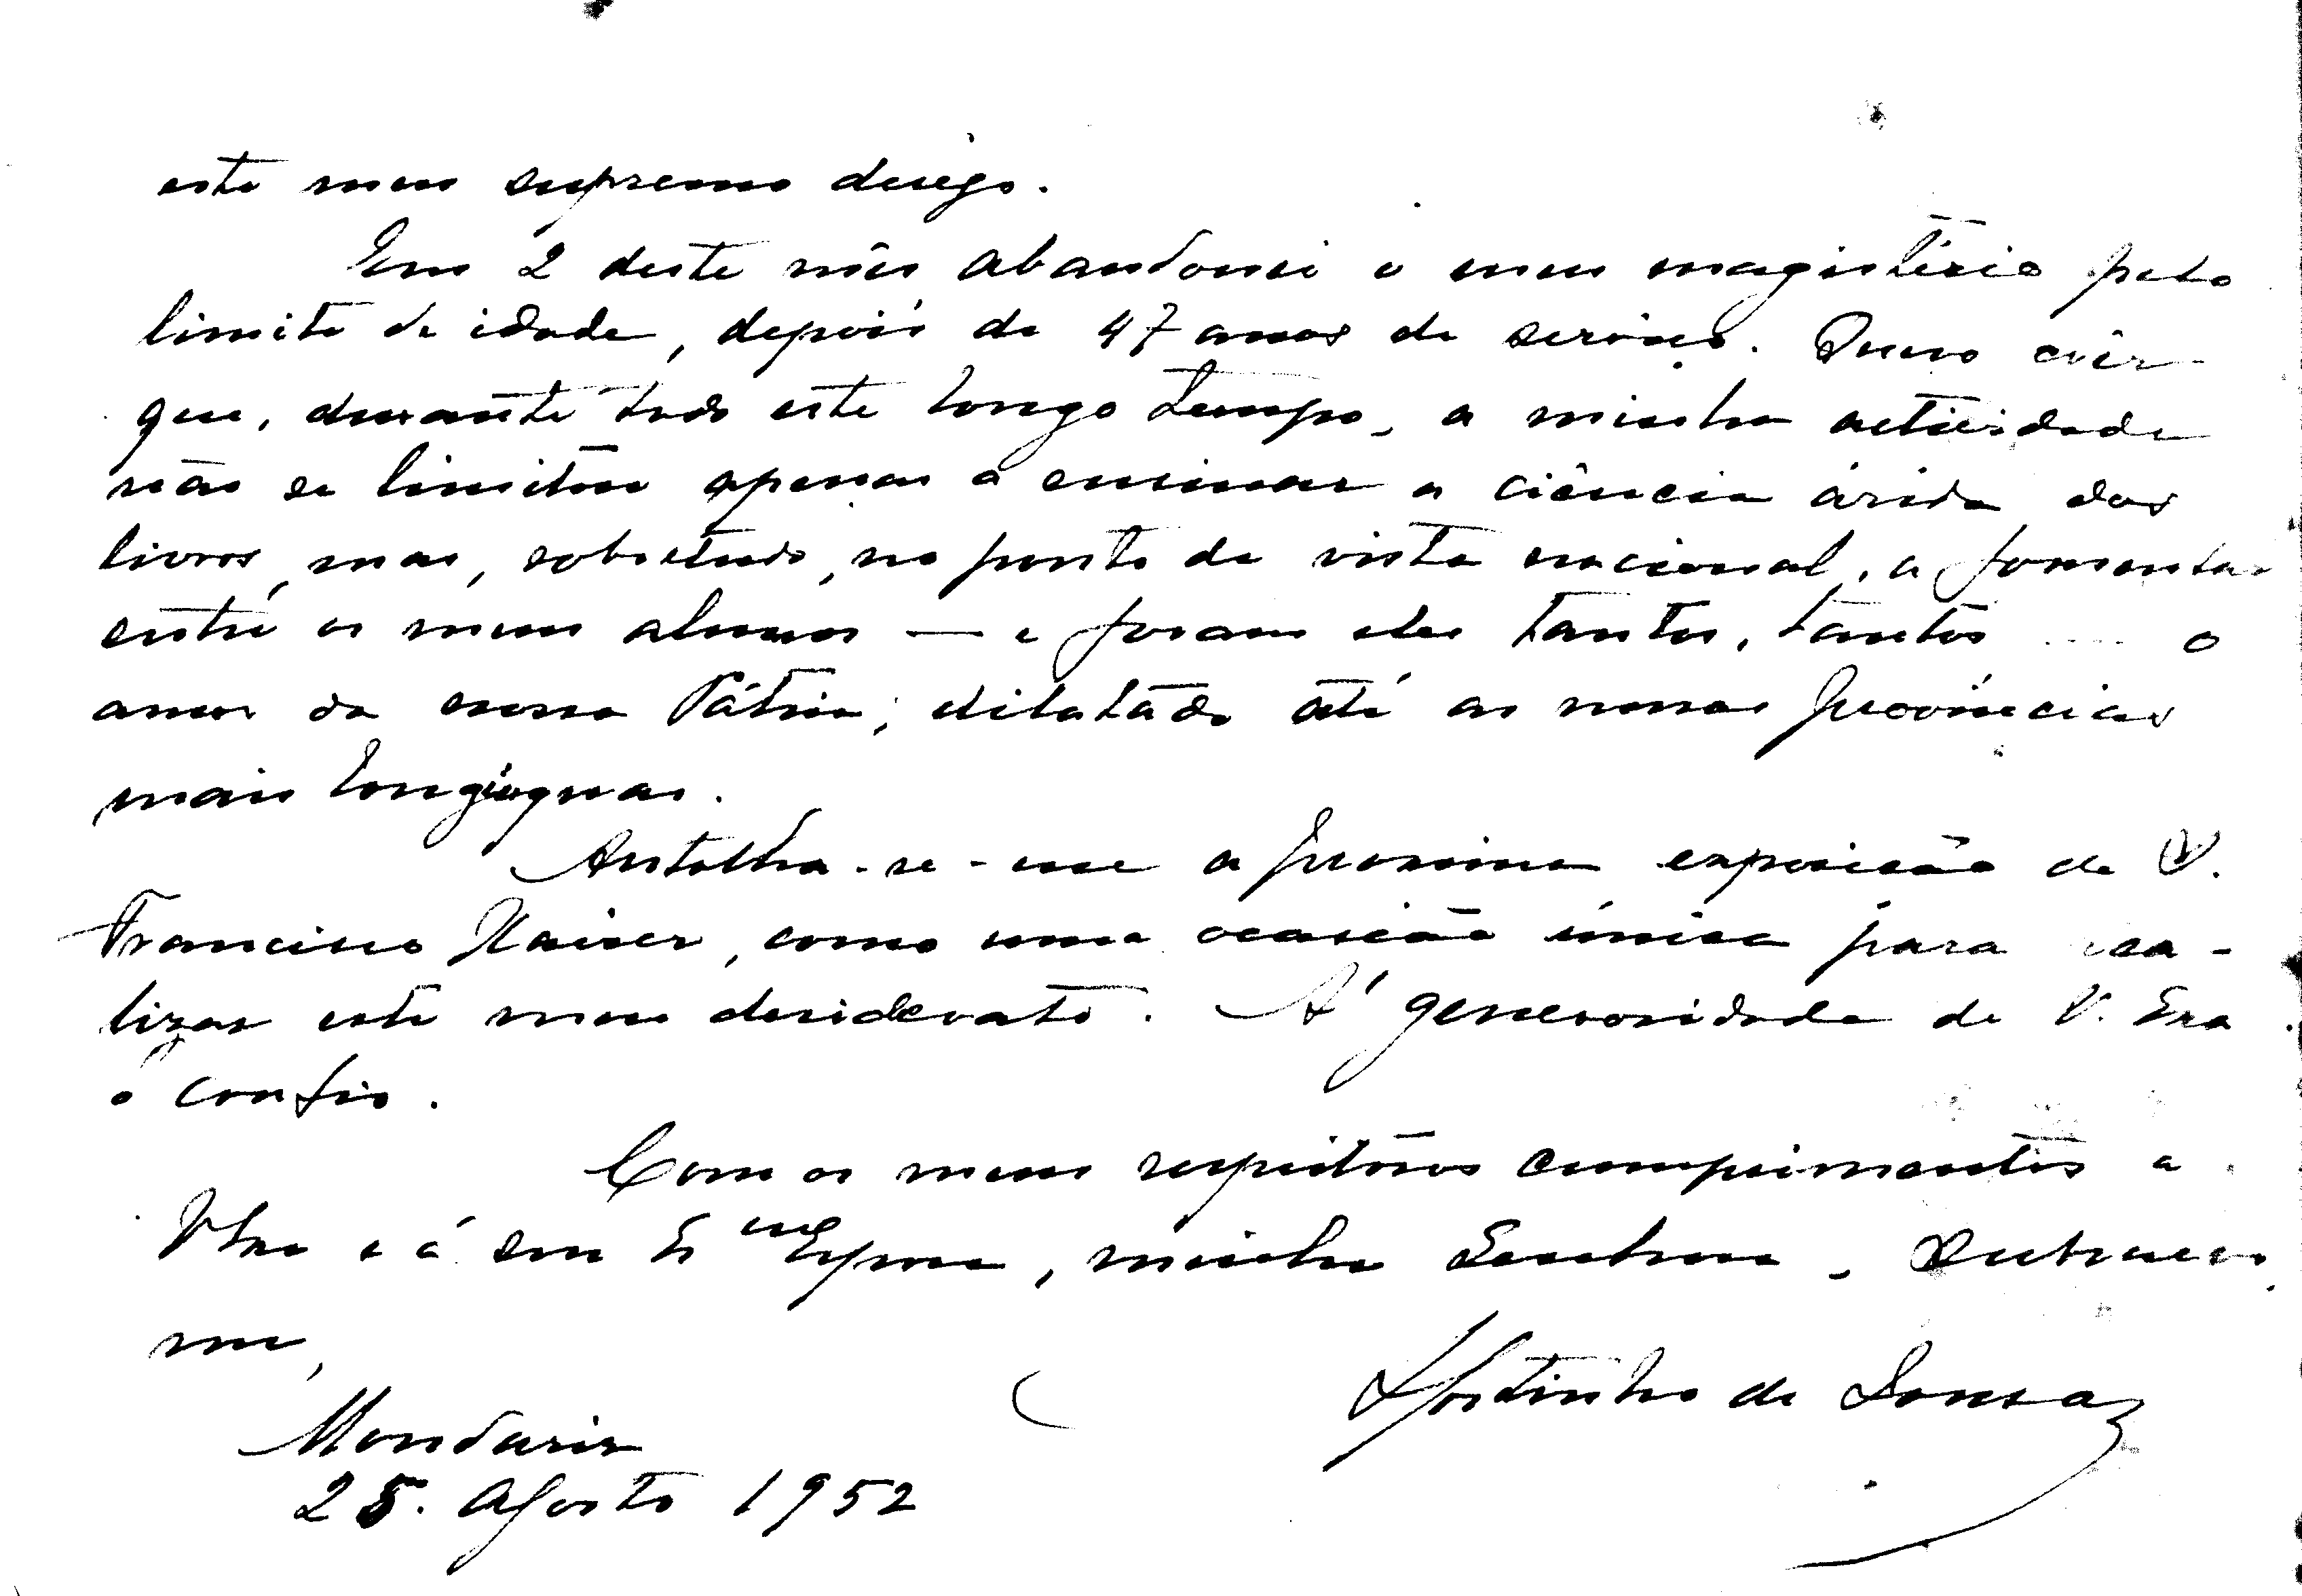 este meu supremo desejo.
Em 2 deste mês abandonei o meu magistério pelo
limite de idade, depois de 47 anos de serviço. Quero crêr
que, durante todo este longo tempo, a minha actividade
não se limitou apenas a ensinar a ciência árida dos
livros, mas, sobretudo, no ponto de vista nacional, a fomentar
entre os meus alunos — e foram eles tantos, tantos — o
amor da nossa Pátria, dilatado até as nossas províncias
mais longínquas.
Antolha-se-me a proxima exposição de S.
Francisco Xavier, como uma ocasião única para rea-
lizar este meu desiderato. A' generosidade de V. Exa
o confio.
Com os meus respeitosos cumprimentos a
V Exa e á sua Ex ma Esposa, minha Senhora,
me,
Agostinho de Sousa
Mondariz
25. Agosto 1952